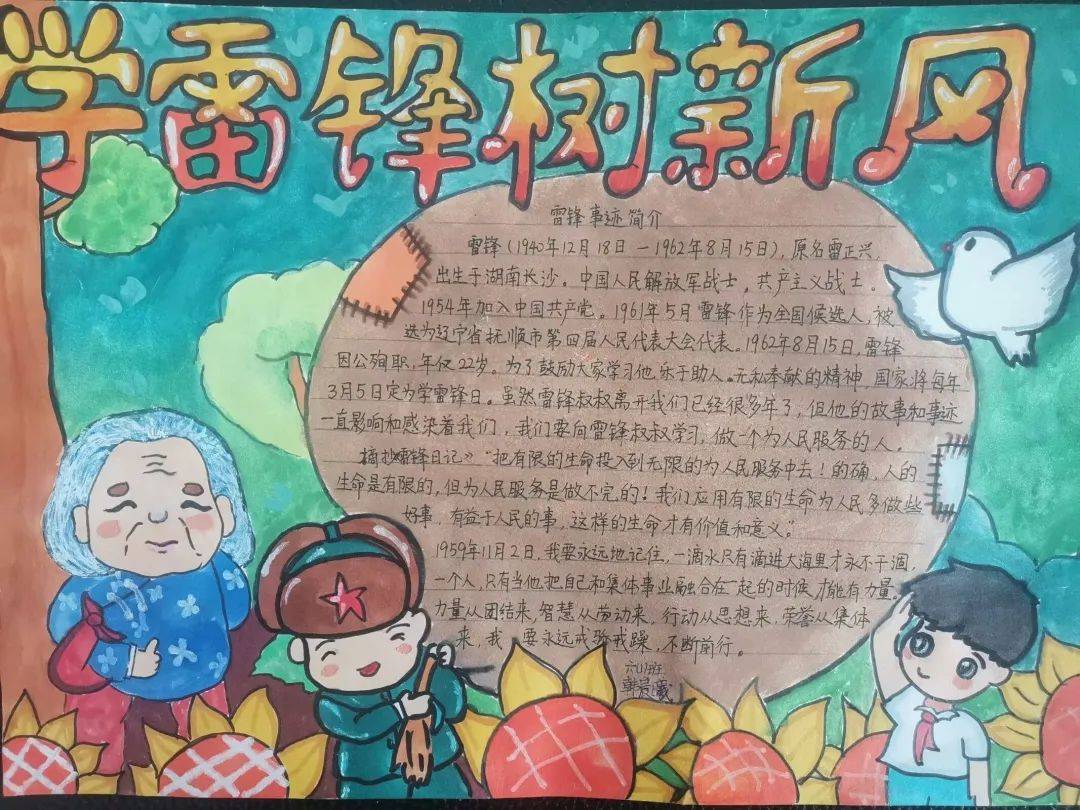 学雷锋树新风
雷锋事迹简介
雷锋（1940年12月18日－1962年8月15日），原名雷正兴，
出生于湖南长沙。中国人民解放军战士，共产主义战士。
1954年加入中国共产党。1961年5月雷锋作为全国候选人，被
选为辽宁省抚顺市第四届人民代表大会代表。1962年8月15日，雷锋
因公殉职，年仅22岁。为了鼓励大家学习他乐于助人。无私奉献的精神，国家将每年
3月5日定为学雷锋日。虽然雷锋叔叔离开我们已经很多年了，但他的故事和事迹
一直影响和感染着我们，我们要向雷锋叔叔学习，做一个为人民服务的人。
摘抄雷锋日记》“把有限的生命投入到无限的为人民服务中去！的确，人的
生命是有限的，但为人民服务是做不完的！我们应用有限的生命为人民多做些
好事，有益于人民的事，这样的生命才有价值和意义。”
1959年11月2日，我要永远地记住，一滴水只有滴进大海里才永不干涸
一个人，只有当他把自己和集体事业融合在一起的时候才能有力量，
力量从团结来，智慧从劳动来，行动从思想来，荣誉从集体
来，我要永远戒骄戒躁，不断前行。